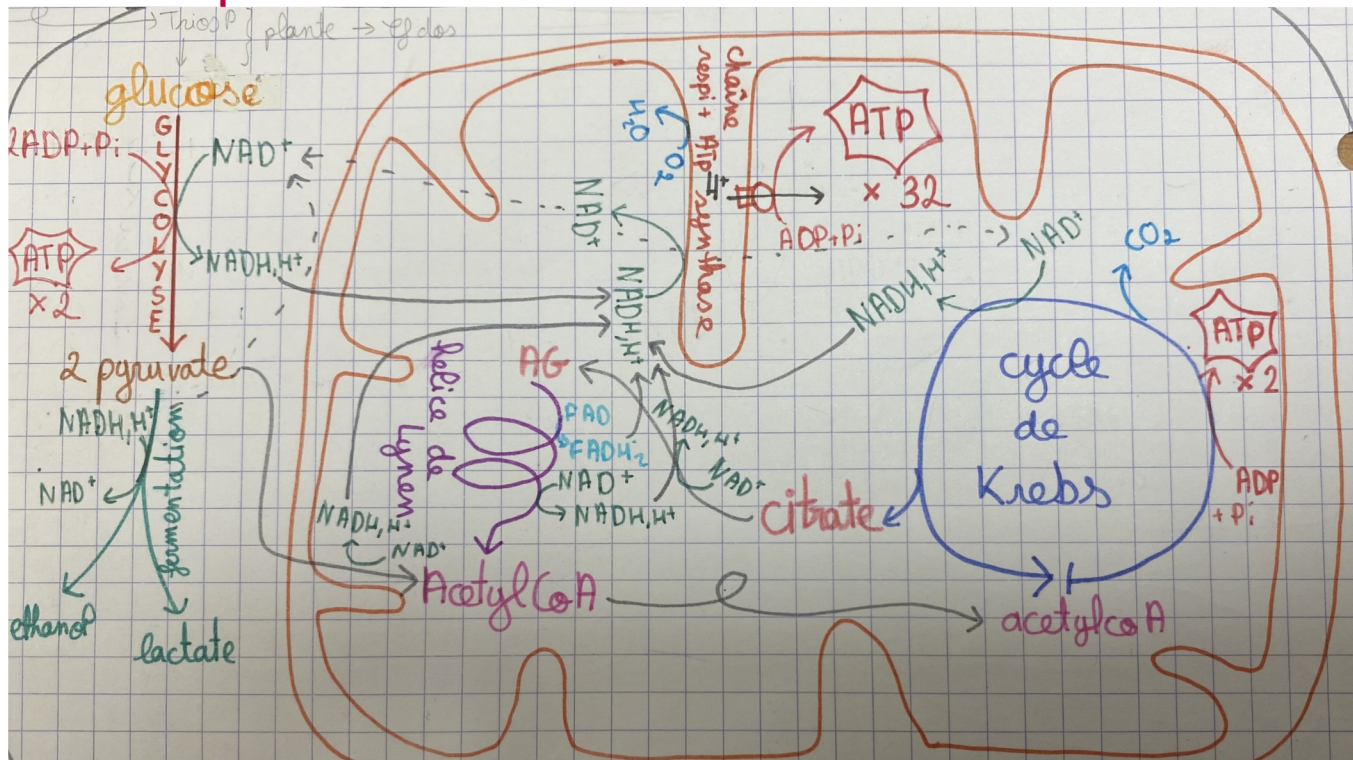 → TriosP } plante →
glucose
GLYCOLYSE
2ADP+Pi
NAD⁺
NADH,H⁺
ATP
x2
2 pyruvate
NADH,H⁺
NAD⁺
fermentation
ethanol
lactate
H₂O
O₂
chaîne
respi + Atp synthase
H⁺
ATP
x 32
ADP+Pi
NAD⁺
NADH,H⁺
NAD⁺
NADH,H⁺
CO₂
cycle
de
Krebs
ATP
x2
ADP
+ Pi
hélice de
Lynen
AG
FAD
FADH₂
NAD⁺
NADH,H⁺
NADH,H⁺
NAD⁺
citrate
NADH,H⁺
NAD⁺
AcetylCoA
acetylcoA